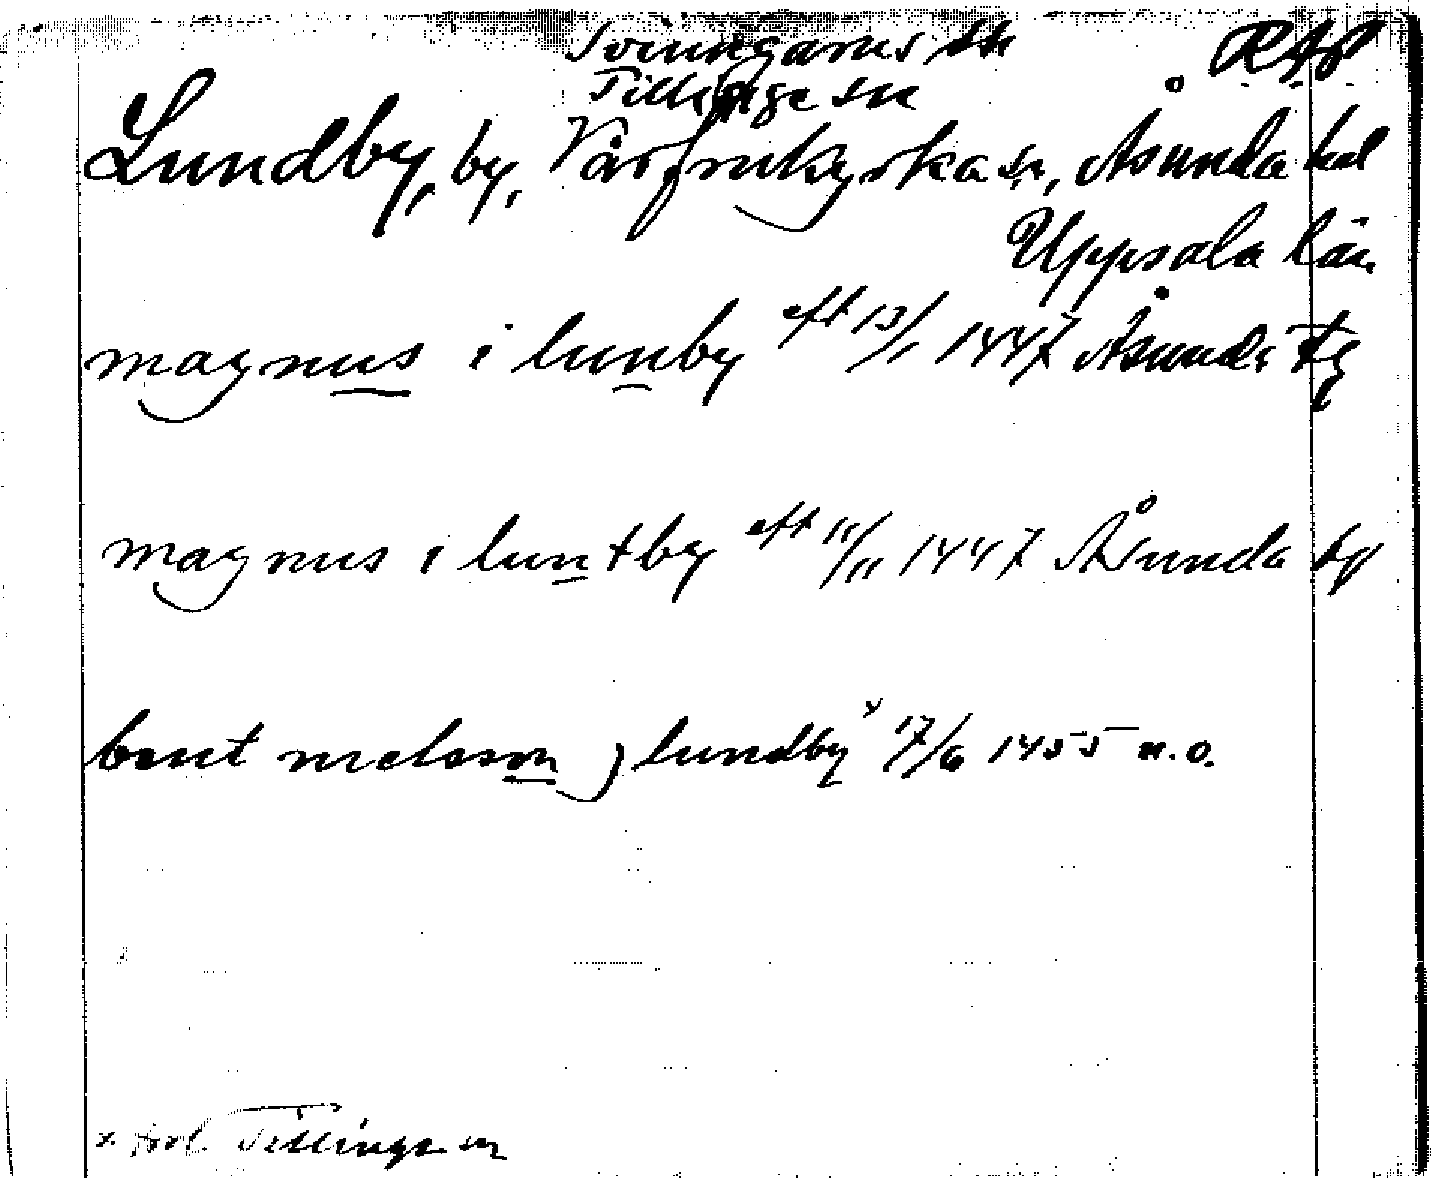 Svinngarns sn
RAP
Tillinge sn
Lundby, by, Vårfrukyrka sn, Åsunda hd
Uppsala län.
magnus i lunby eft 13/1 1447 Åsunda
magnus i luntby eft 11/11 1447 Åsunda
bent nielsson j lundby x 17/6 1455 n.o.
x. Tillinge sn